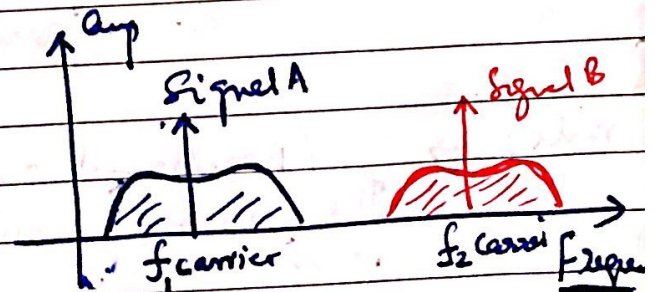 Amp
Signal A
Signal B
f1 carrier
f2 Carri
Freque